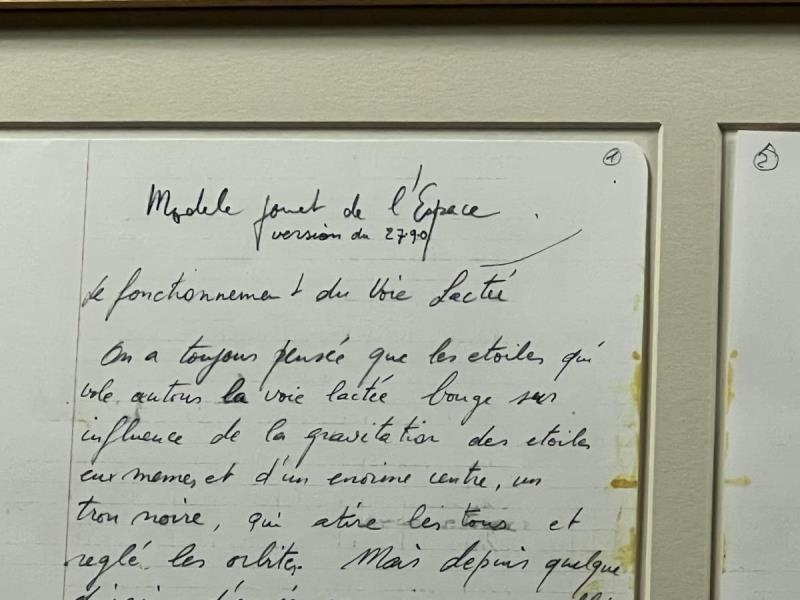 1
2
Modele jouet de l'Espace
version du 2790
Le fonctionnement du Voie Lacteé
On a toujous penseé que les etoiles qui
vole autous la voie lacteé bouge sur
influence de la gravitation des etoiles
eux memes, et d'un enorime centre, un
trou noire, qui atire les tous et
reglé les orbites. Mais depuis quelque